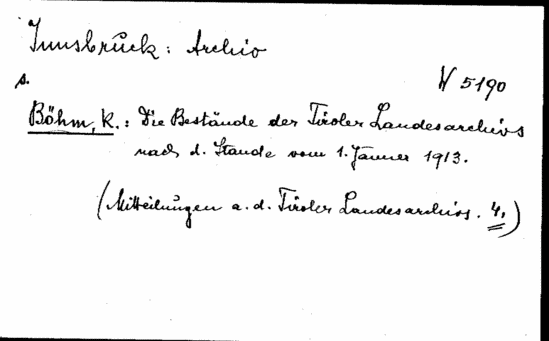 Innsbruck: Archiv
s.
W 5190
Böhm, K.: Die Bestände des Tiroler Landesarchivs
nach d. Stande vom 1. Jänner 1913.
(Mitteilungen a. d. Tiroler Landesarchiv. 4.)